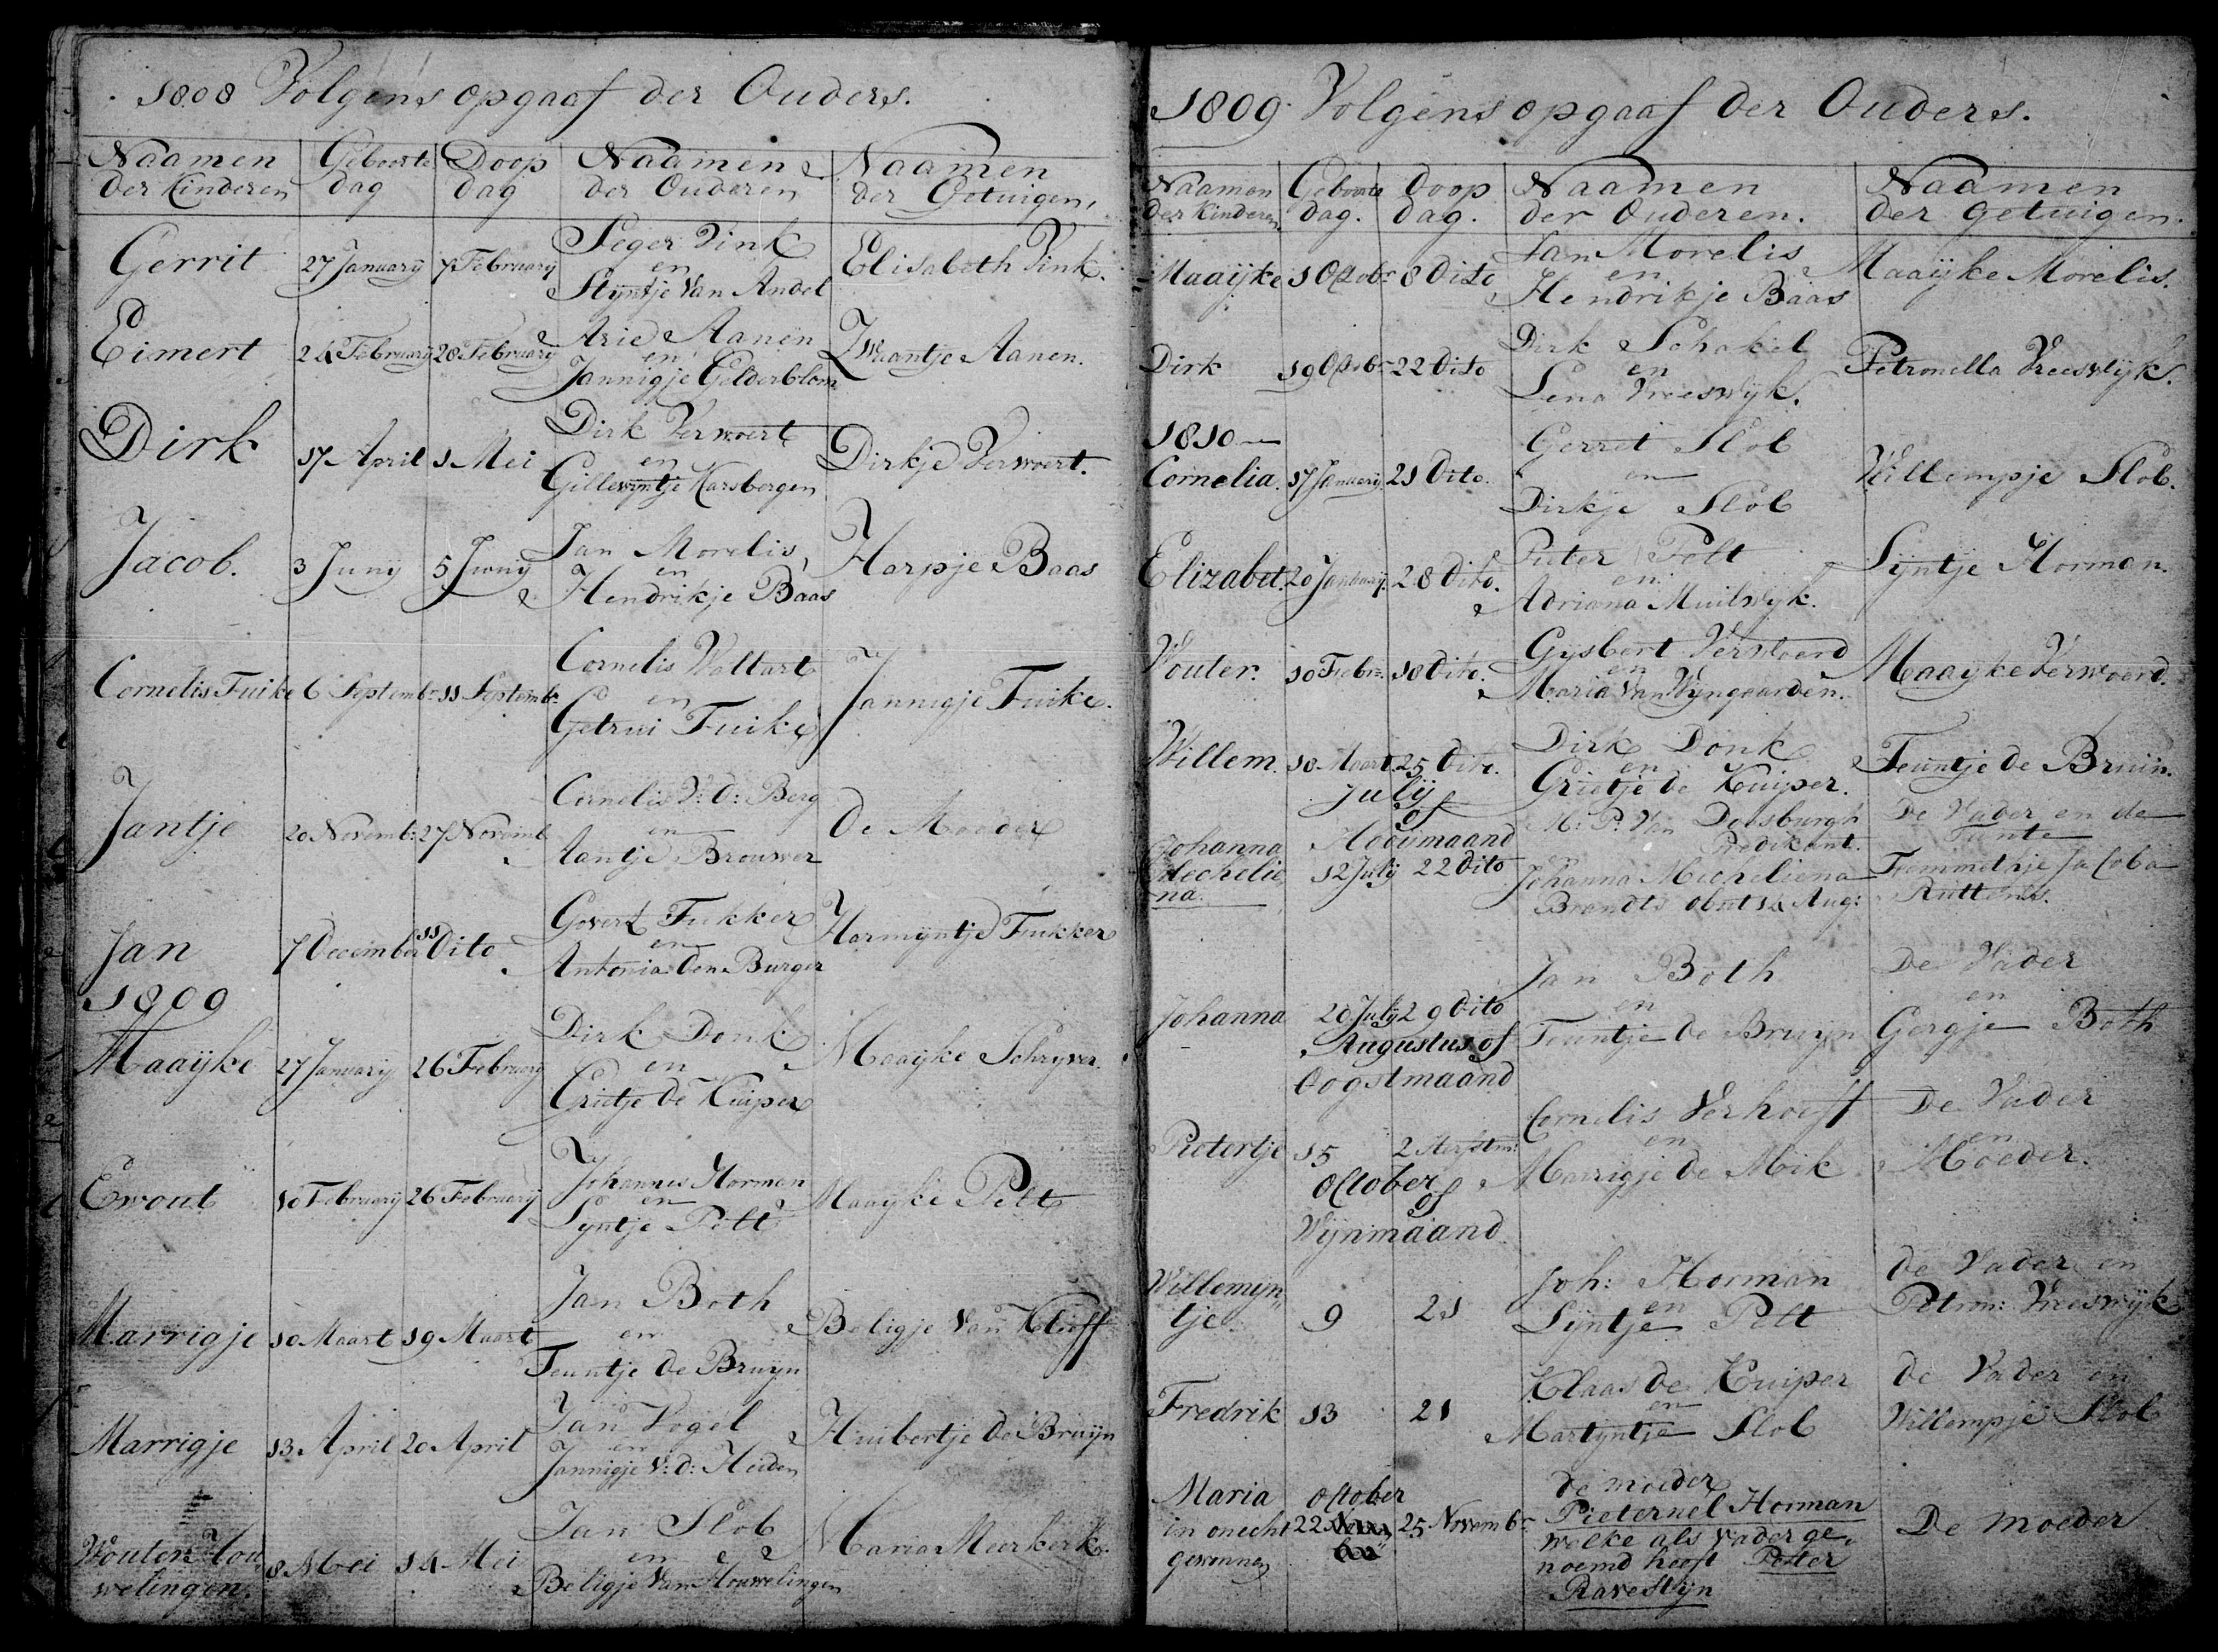 1808 Volgens opgaaf der Ouders.
Naamen Geboorte Doop Naamen Naamen
der Kinderen dag dag der Ouderen der Getuigen,
Seger Pink
Gerrit 27 January 7 February en Elisabeth Pink.
Styntje Van Andel
Arie Aanen
Eimert 24 February 28 February en Zwaantje Aanen.
Jannigje Gelderblom
Dirk Verwoert
Dirk 17 April 1 Mei en Dirkje Verwoert.
Karsbergen
Jan Morelis,
Jacob. 3 Juny 5 Juny en Harpje Baas
Hendrikje Baas
Cornelis Woltart
Cornelis Fuike 6 Septembr 11 Septembr en Jannigje Fuike.
Getrui Fuike
Cornelis V: d: Berg
Jantje 20 Novemb: 27 Novemb en De Moeder
Aantje Brouwer
Govert Fukker
Jan 7 December 11 Dito en Harmyntje Fukker
Antonia den Burger
1809
Dirk Donk
Maaijke 27 January 26 February en Maayke Schryver.
Grietje de Kuiper
Johannes Horman
Ewout 10 February 26 February en Maayke Pelt
Syntje Pelt
Jan Both
Marrigje 10 Maart 19 Maart en Beligje Van Kleeff
Teuntje de Bruyn
Jan Vogel
Marrigje 13 April 20 April en Huibertje de Bruyn
Jannigje V: d: Heiden
Jan Slob
Wouter Hou 8 Mei 14 Mei en Maria Meerkerk.
welingen. Beligje Van Houwelingen
1809 Volgens opgaaf der Ouders.
Naamen Geboorte Doop Naamen Naamen
der Kinderen dag. dag. der Ouderen. der getuigen.
Jan Morelis
Maaijke 1 Octobr 8 Dito en Maaijke Morelis.
Hendrikje Baas
Dirk Schakel
Dirk 19 Octobr 22 Dito en Petronella Vreeswyk.
Lena Vreeswyk.
1810
Gerrit Slob
Cornelia. 17 January. 21 Dito. en Willempje Slob.
Dirkje Slob
Pieter Pelt
Elizabet. 20 January. 28 Dito. en Syntje Horman.
Adriana Muilwyk.
Gysbert Verwoerd
Wouter. 10 Febr. 18 Dito. en Maayke Verwoerd.
Maria Van Wyngaarden.
Dirk Donk
Willem. 18 Maart. 25 Dito. en Teuntje de Bruin.
Grietje de Kuiper.
July
of
Hooimaand
M: P: Van Doesburgh De Vader en de
Predikant. Tante
Johanna
Mechelie 12 July 22 Dito Johanna Micheliena Jacoba
na. Brandts obiit 14 Aug: Ruttens.
Jan Both De Vader
Johanna 20 July 29 Dito en en
Teuntje de Bruyn Gergje Both
Augustus of
Oogstmaand
Cornelis Verhoeff De Vader
Pietertje 15 2 Herfstm: en en
Marrigje de Mik Moeder.
October
of
Wynmaand.
Willemyn Joh: Horman de Vader en
tje 9 21 en Petron: Vreeswyk
Syntje Pelt
Klaas de Kuiper de Vader en
Fredrik 13 21 en Willempje Slob
Martyntje Slob
de moeder
Maria October Pieternel Horman
in onecht 22 25 Novembr welke als vader ge De moeder
gewonnen noemd heeft Peter
Ravestyn